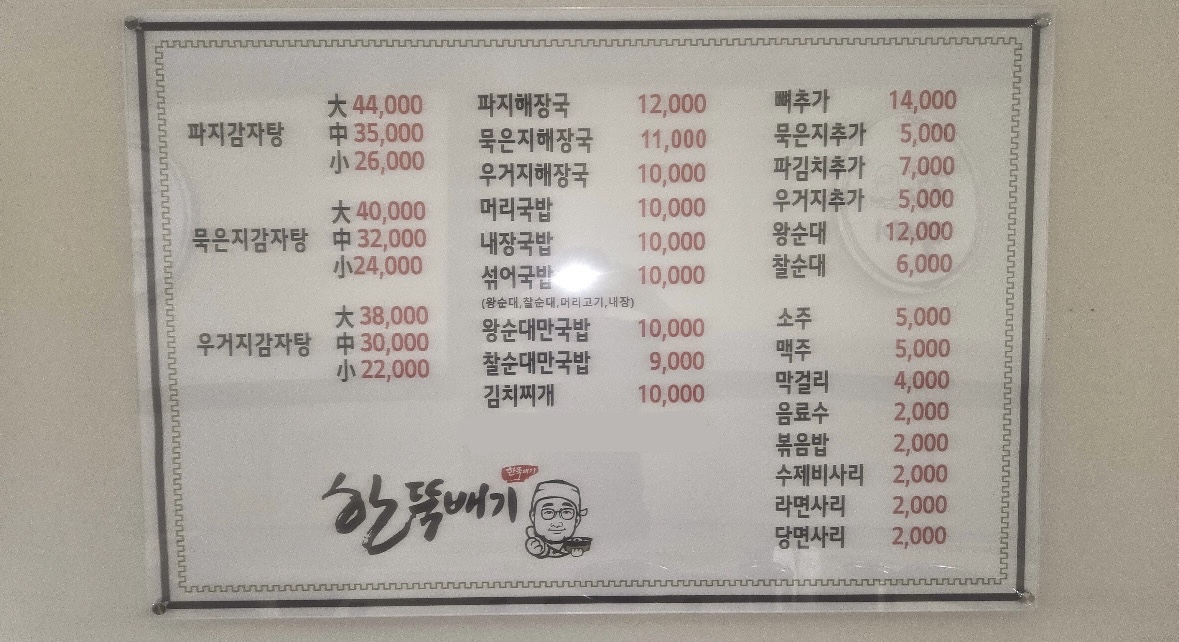 파지감자탕
大 44,000
中 35,000
小 26,000
묵은지감자탕
大 40,000
中 32,000
小 24,000
우거지감자탕
大 38,000
中 30,000
小 22,000
파지해장국 12,000
묵은지해장국 11,000
우거지해장국 10,000
머리국밥 10,000
내장국밥 10,000
섞어국밥 10,000
(왕순대,찰순대,머리고기,내장)
왕순대만국밥 10,000
찰순대만국밥 9,000
김치찌개 10,000
뼈추가 14,000
묵은지추가 5,000
파김치추가 7,000
우거지추가 5,000
왕순대 12,000
찰순대 6,000
소주 5,000
맥주 5,000
막걸리 4,000
음료수 2,000
볶음밥 2,000
수제비사리 2,000
라면사리 2,000
당면사리 2,000
한뚝배기
한뚝배기